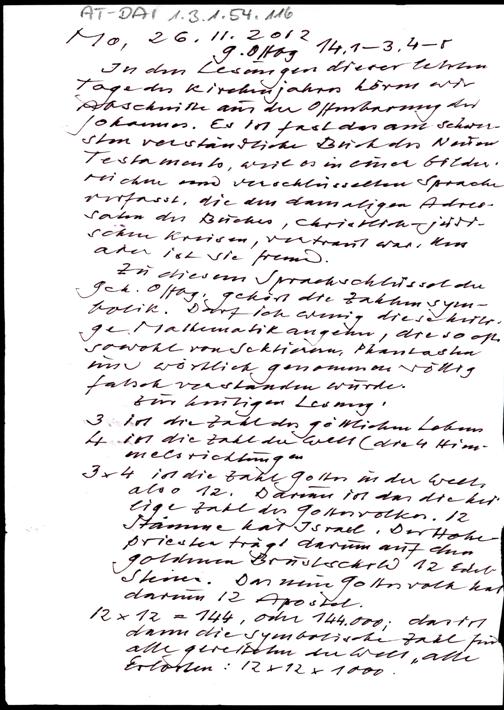 AT-DAI 1.3.1.54.116
Mo, 26.11.2012
g. Offbg 14,1-3.4-5
In den Lesungen dieser letzten
Tage des Kirchenjahres hören wir
Abschnitte aus der Offenbarung des
Johannes. Es ist fast das am schwer-
sten verständliche Buch des Neuen
Testaments, weil es in einer bilder-
reichen und verschlüsselten Sprache
verfasst, die den damaligen Adres-
saten des Buches, christlich-jüdi-
schen Kreisen, vertraut war. Uns
aber ist sie fremd.
Zu diesem Sprachschlüssel der
Geh. Offbg. gehört die Zahlensym-
bolik. Darf ich wenig diese heili-
ge Mathematik angehn, die so oft
sowohl von Sektierern, Phantasten
und wörtlich genommen völlig
falsch verstanden wurde.
Zur heutigen Lesung:
3 ist die Zahl des göttlichen Lebens
4 ist die Zahl der Welt (die 4 Him-
melsrichtungen
3 x 4 ist die Zahl Gottes in der Welt,
also 12. Darum ist das die hei-
lige Zahl des Gottesvolkes. 12
Stämme hat Israel. Der Hohe-
priester trägt darum auf dem
goldenen Brustschild 12 Edel-
steine. Das neue Gottesvolk hat
darum 12 Apostel.
12 x 12 = 144, oder 144.000; das ist
dann die symbolische Zahl für
alle geretteten der Welt, „alle
Erlösten: 12 x 12 x 1000.